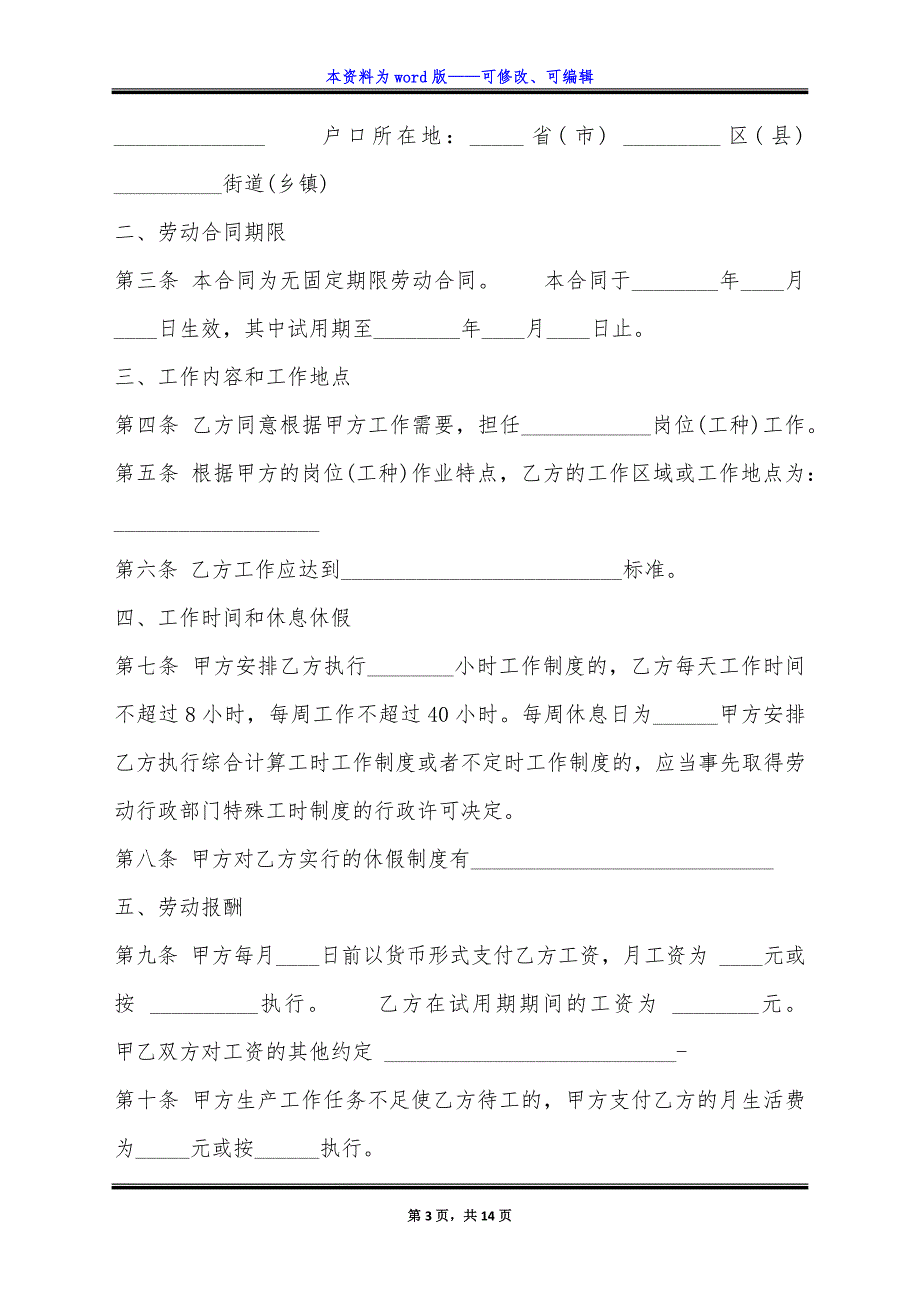 本资料为 word 版——可修改、可编辑
______________ 户口所在地：_____省(市) _________区(县)
__________街道(乡镇)
二、劳动合同期限
第三条 本合同为无固定期限劳动合同。 本合同于________年____月
____日生效，其中试用期至________年____月____日止。
三、工作内容和工作地点
第四条 乙方同意根据甲方工作需要，担任____________岗位(工种)工作。
第五条 根据甲方的岗位(工种)作业特点，乙方的工作区域或工作地点为：
___________________
第六条 乙方工作应达到__________________________标准。
四、工作时间和休息休假
第七条 甲方安排乙方执行________小时工作制度的，乙方每天工作时间
不超过 8 小时，每周工作不超过 40 小时。每周休息日为______甲方安排
乙方执行综合计算工时工作制度或者不定时工作制度的，应当事先取得劳
动行政部门特殊工时制度的行政许可决定。
第八条 甲方对乙方实行的休假制度有____________________________
五、劳动报酬
第九条 甲方每月____日前以货币形式支付乙方工资，月工资为 ____元或
按 __________执行。 乙方在试用期期间的工资为 ________元。
甲乙双方对工资的其他约定 ___________________________-
第十条 甲方生产工作任务不足使乙方待工的，甲方支付乙方的月生活费
为_____元或按______执行。
第 3 页，共 14 页